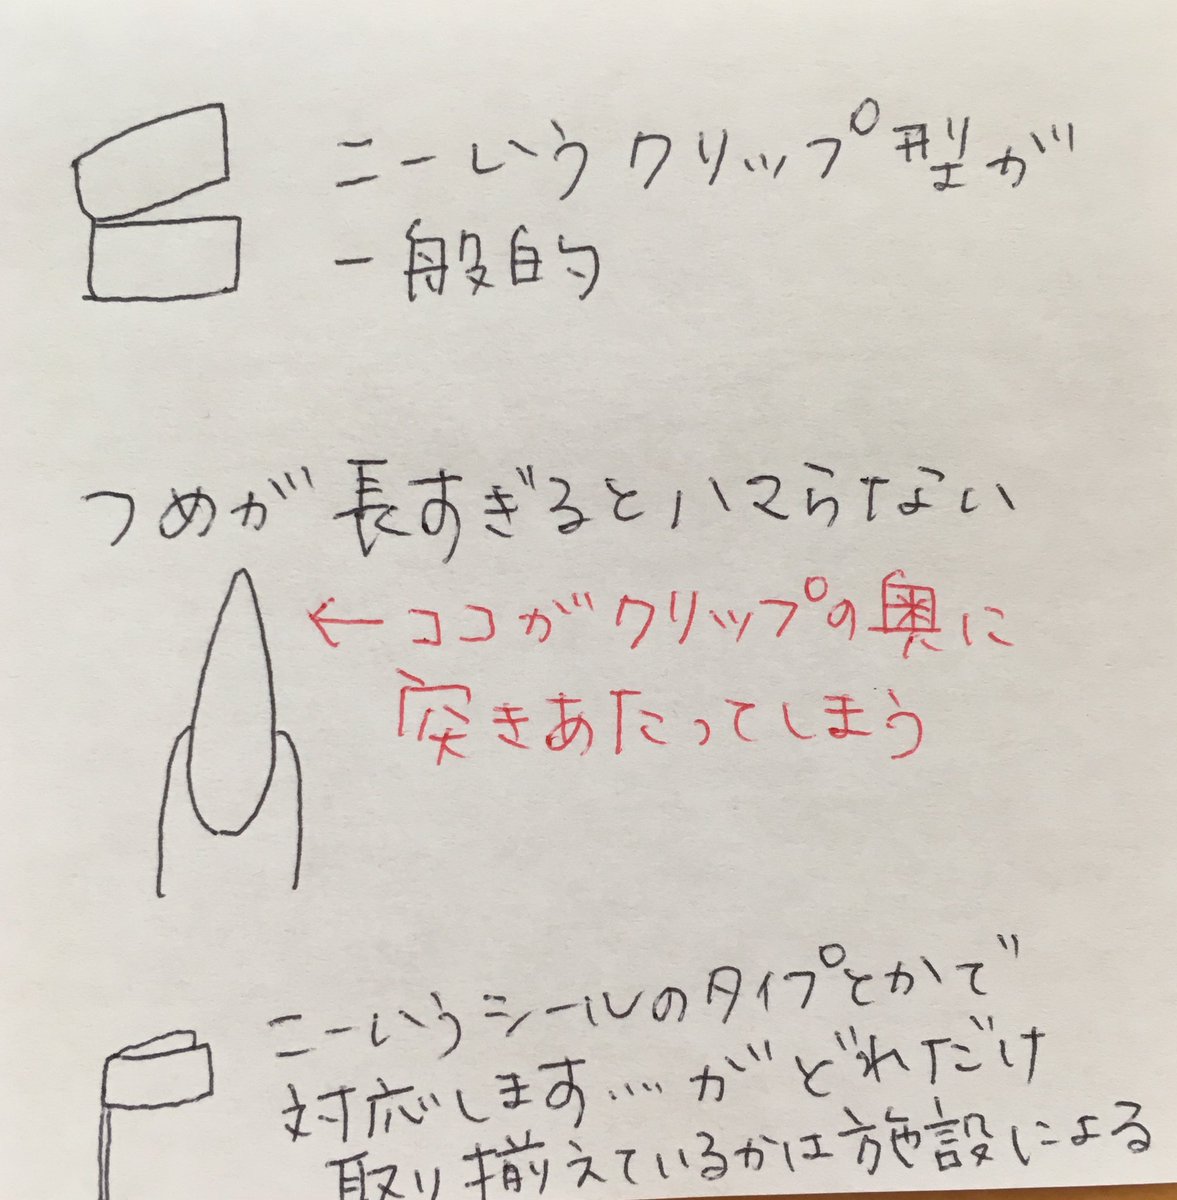 こーいうクリップ型が
一般的
つめが長すぎるとハマらない
←ココがクリップの奥に
突きあたってしまう
こーいうシールのタイプとかで
対応します…がどれだけ
取り揃えているかは施設による